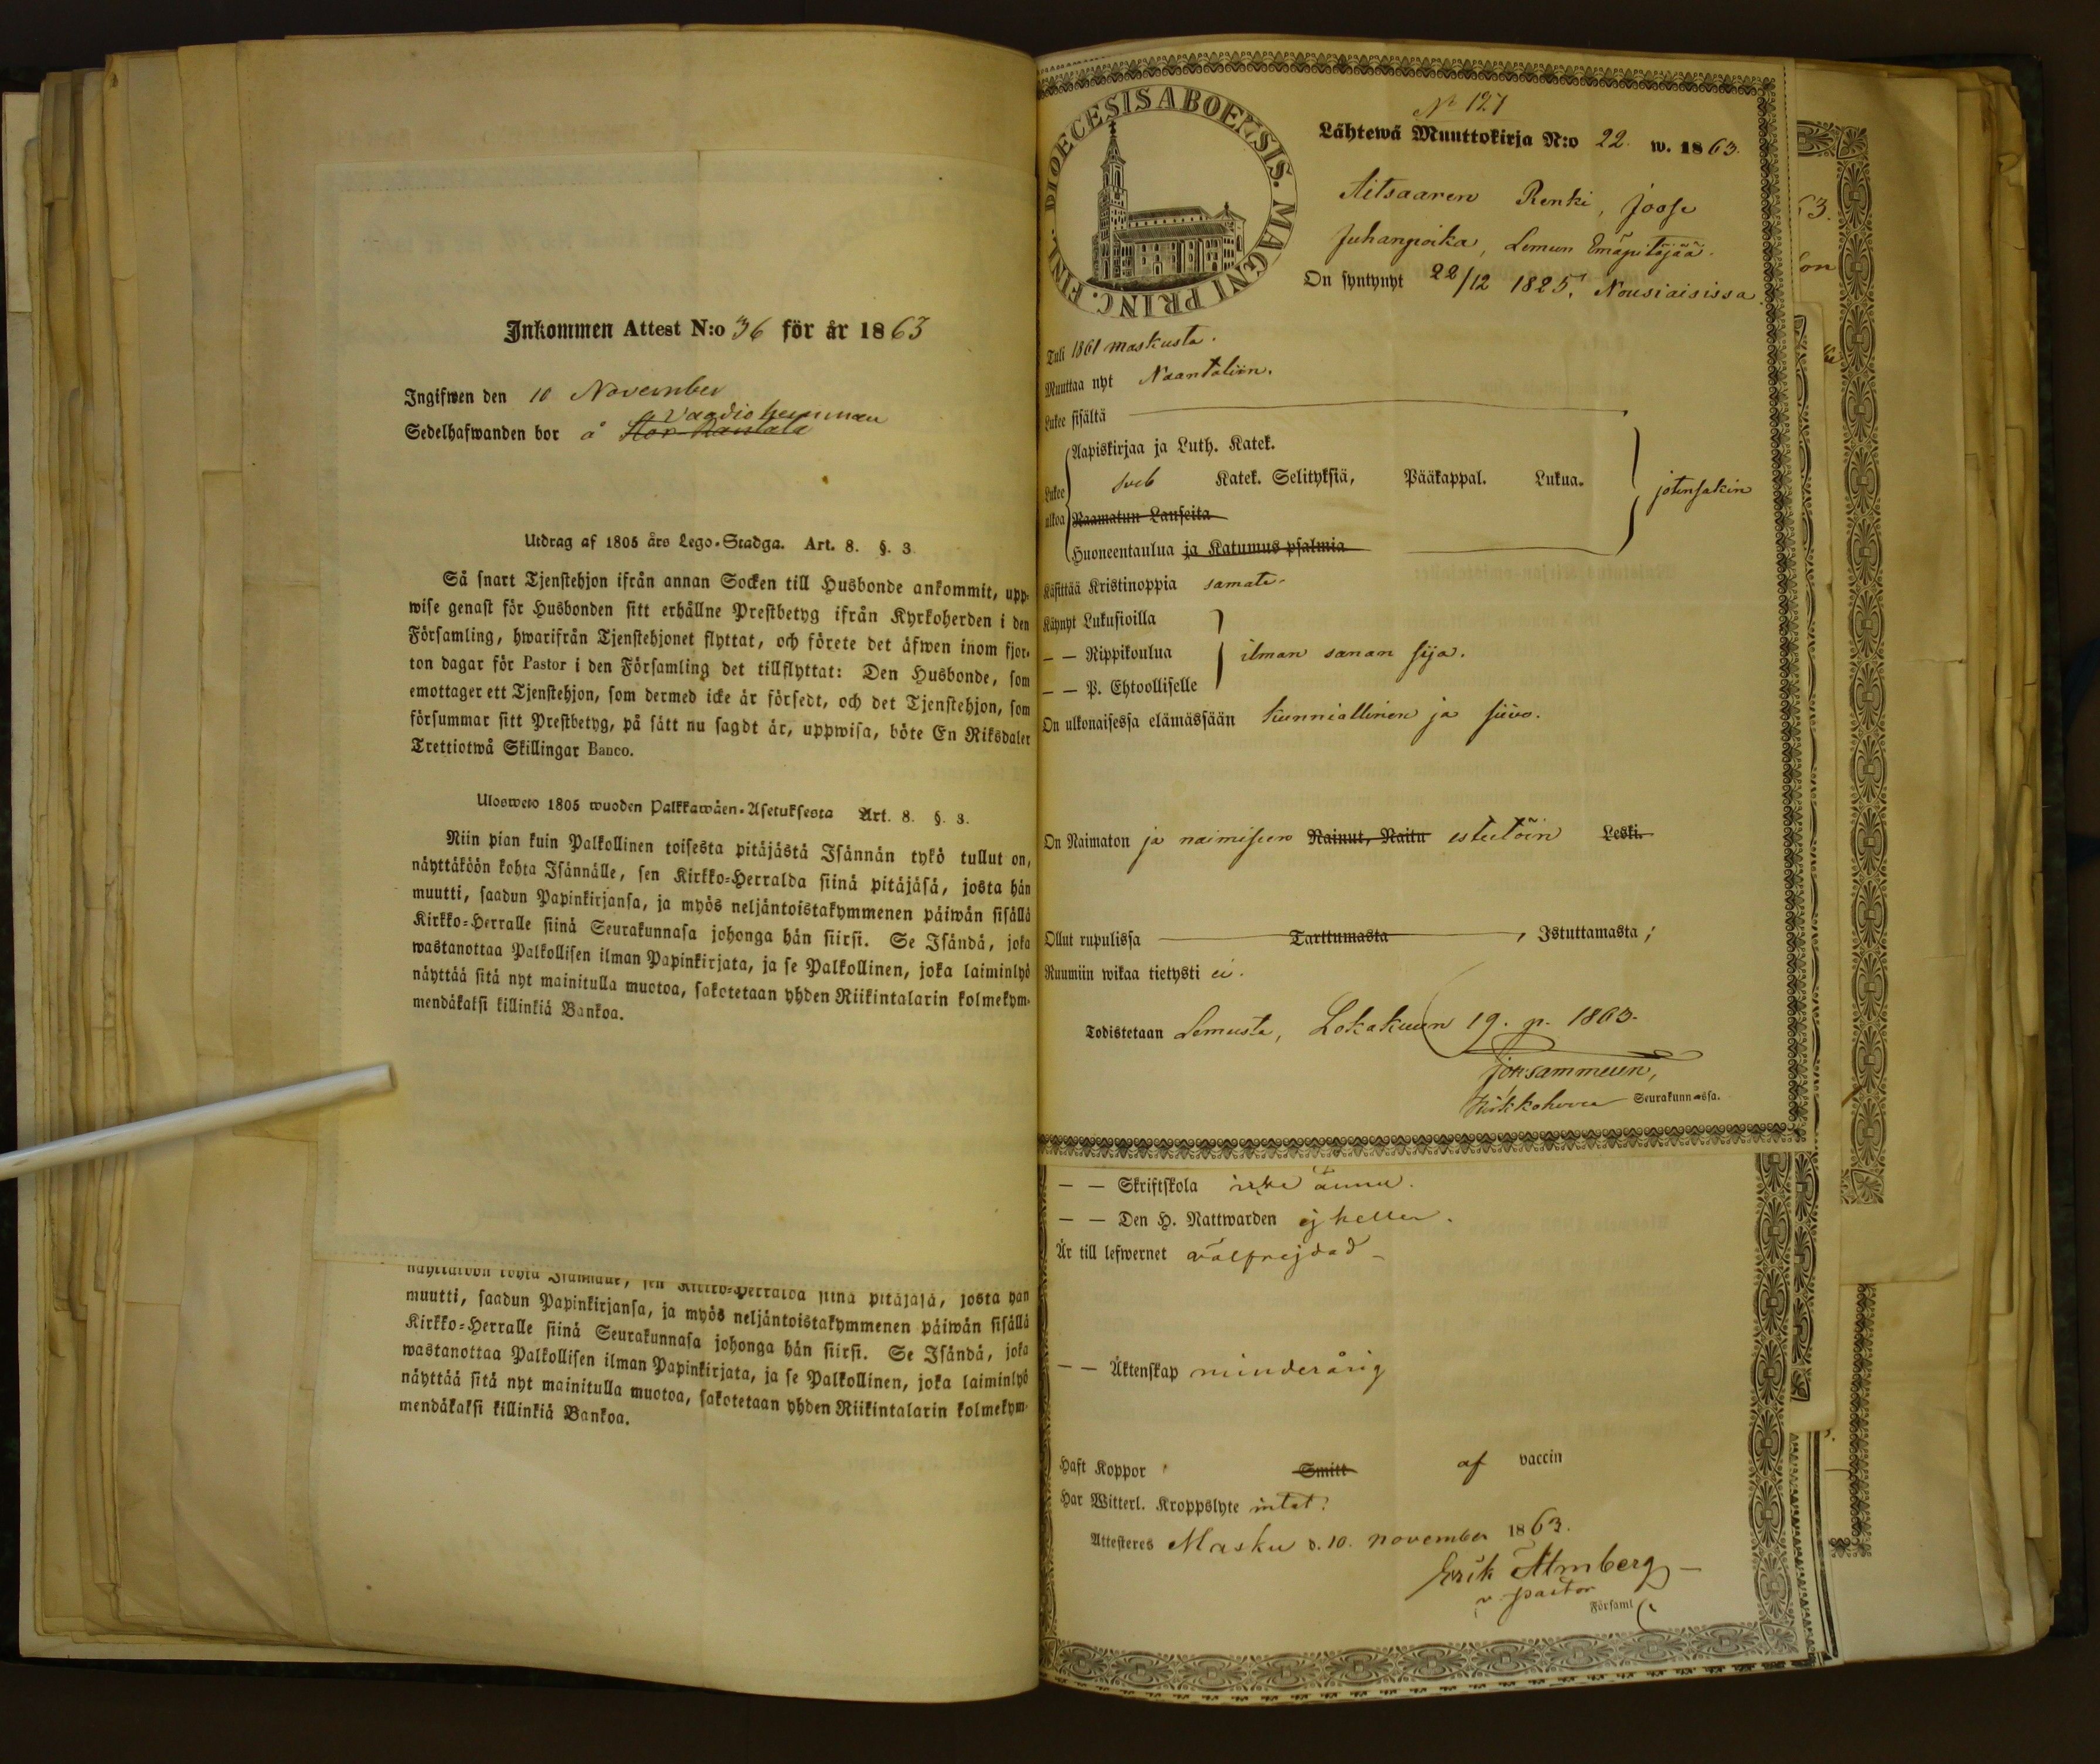 Inkommen Attest N:o 36 för år 1863
Ingifwen den 10 November
Sedelhafwanden bor å Stor-Rantala
Utdrag af 1805 års Lego-Stadga. Art. 8. §. 3
Så snart Tjenstehjon ifrån annan Socken till Husbonde ankommit, upp-
wise genast för Husbonden sitt erhållne Prestbetyg ifrån Kyrkoherden i den
Församling, hwarifrån Tjenstehjonet flyttat, och förete det äfwen inom fjor-
ton dagar för Pastor i den Församling det tillflyttat: Den Husbonde, som
emottager ett Tjenstehjon, som dermed icke är försedt, och det Tjenstehjon, som
försummar sitt Prestbetyg, på sätt nu sagdt är, uppwisa, böte En Riksdaler
Trettiotwå Skillingar Banco.
Uloswelo 1805 wuoden Palkkawäen-Asetuksesta Art. 8. §. 3.
Niin pian kuin Palkollinen toisesta pitäjästä Isännän tykö tullut on,
näyttäköön kohta Isännälle, sen Kirkko-Herralda siinä pitäjäsä, josta hän
muutti, saadun Papinkirjansa, ja myös neljäntoistakymmenen päiwän sisällä
Kirkko-Herralle siinä Seurakunnasa johonga hän siirsi. Se Isändä, joka
wastanottaa Palkollisen ilman Papinkirjata, ja se Palkollinen, joka laiminlyö
näyttää sitä nyt mainitulla muotoa, sakotetaan yhden Riikintalarin kolmekym-
mendäkaksi killinkiä Bankoa.
näyttäköön kohta Isännälle, sen Kirkko-Herralda siinä pitäjäsä, josta hän
muutti, saadun Papinkirjansa, ja myös neljäntoistakymmenen päiwän sisällä
Kirkko-Herralle siinä Seurakunnasa johonga hän siirsi. Se Isändä, joka
wastanottaa Palkollisen ilman Papinkirjata, ja se Palkollinen, joka laiminlyö
näyttää sitä nyt mainitulla muotoa, sakotetaan yhden Riikintalarin kolmekym-
mendäkaksi killinkiä Bankoa.
DIOECESIS ABOENSIS. MAGNI PRINC. FINL.
N 127
Lähtewä Muuttokirja N:o 22. w. 1863.
Aitsaaren Renki, Joose
Juhanpoika, Lemun Emäpitäjää.
On syntynyt 22/12 1825, Nousiaisissa.
Tuli 1861 Maskusta.
Muuttaa nyt Naantaliin.
Lukee sisältä
Aapiskirjaa ja Luth. Katek.
Lukee ulkoa
Katek. Selityksiä, Pääkappal. Lukua. jotensakin
Raamatun Lauseita
Huoneentaulua ja Katumus psalmia
Käsittää Kristinoppia samate.
Käynyt Lukusioilla
— — Rippikoulua ilman sanan sija.
— — P. Ehtoolliselle
On ulkonaisessa elämässään kunniallinen ja siivo.
On Naimaton ja naimiseen Nainut, Naitu esteetöin Leski.
Ollut rupulissa Tarttumasta, Istuttamasta;
Ruumiin wikaa tietysti ei.
Todistetaan Lemusta, Lokakuun 19. p. 1863.
Kirkkoherra Seurakunnassa.
— — Skriftskola icke ännu.
— — Den H. Nattwarden ej heller.
Är till lefwernet wälfrejdad
— — Äktenskap minderårig
Haft Koppor Smitt af vaccin
Har Witterl. Kroppslyte intet.
Attesteres Masku d. 10. november 1863.
Erik Almberg
v. pastor
Församl